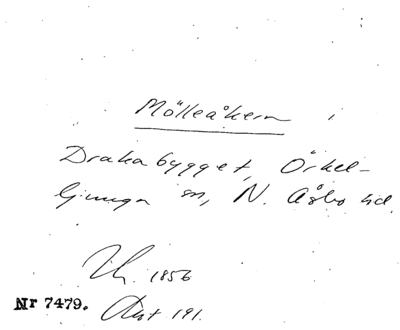 Mölleåkern i
Drakabygget, Örkel-
ljunga sn, N. Åsbo hd.
Lh. 1856
Nr 7479. Akt 191.